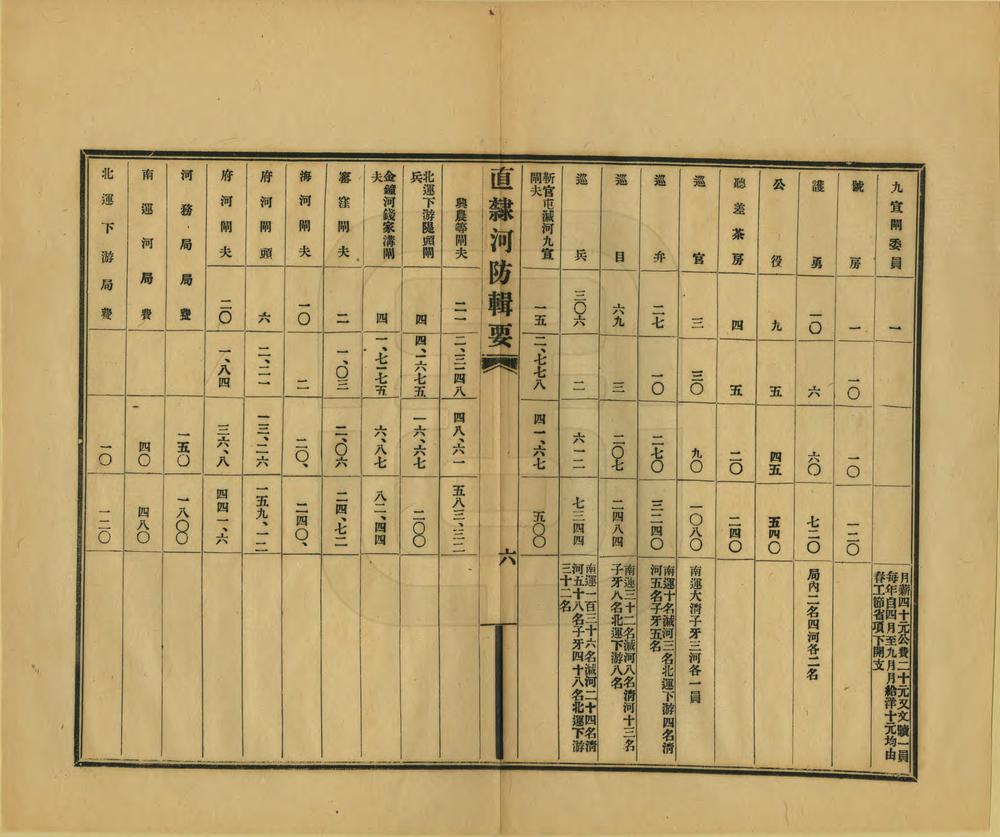 九宣閘委員 一 月薪四十元公費二十元又文牘一員
每年自四月至九月月給洋十元均由
春工節省項下開支
號房 一 一〇 一〇 一二〇
護勇 一〇 六 六〇 七二〇 局內二名四河各二名
公役 九 五 四五 五四〇
聽差茶房 四 五 二〇 二四〇
巡官 三 三〇 九〇 一〇八〇 南運大清子牙三河各一員
巡弁 二七 一〇 二七〇 三二四〇 南運十名減河三名北運下游四名清
河五名子牙五名
巡目 六九 三 二〇七 二四八四 南運三十二名減河八名清河十三名
子牙八名北運下游八名
巡兵 三〇六 二 六一二 七三四四 南運一百三十六名減河二十四名清
河五十八名子牙四十八名北運下游
三十二名
靳官屯減河九宣
閘夫 一五 二、七七八 四一、六七 五〇〇
直隸河防輯要
六
興農等閘夫 二一 二、三一四八 四八、六一 五八三、三二
北運下游隄頭閘
兵 四 四、一六七五 一六、六七 二〇〇
金鐘河錢家溝閘
夫 四 一、七一七五 六、八七 八二、四四
窩窪閘夫 二 一、〇三 二、〇六 二四、七二
海河閘夫 一〇 二 二〇、 二四〇、
府河閘頭 六 二、二一 一三、二六 一五九、一二
府河閘夫 二〇 一、八四 三六、八 四四一、六
河務局局費 一五〇 一八〇〇
南運河局費 四〇 四八〇
北運下游局費 一〇 一二〇